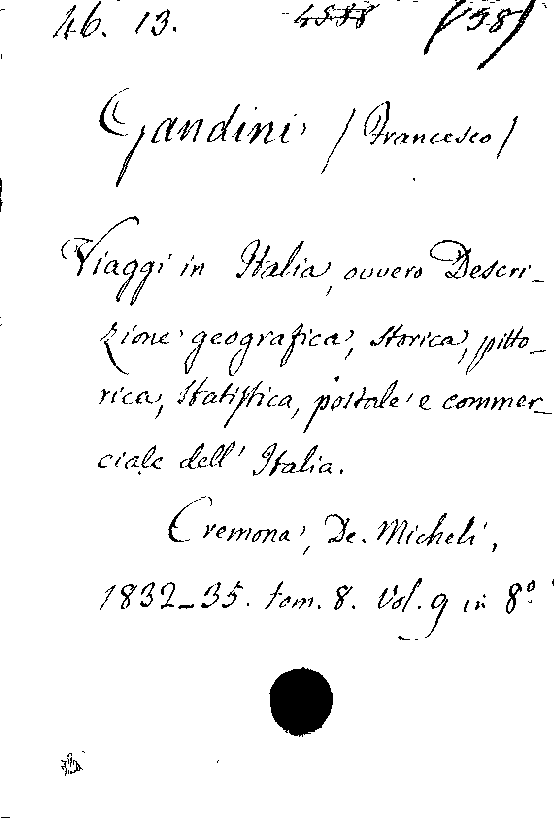 46. 13. 4588 (58)
Gandini /Francesco/
Viaggi in Italia, ovvero Descri-
zione geografica, storica, pitto-
rica, statistica, postale e commer-
ciale dell' Italia.
Cremona, De. Micheli,
1832-35. tom. 8. Vol. 9 in 8º